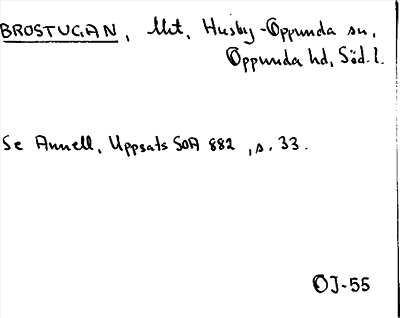 BROSTUGAN, lht, Husby-Oppunda sn,
Oppunda hd, Söd. l.
Se Annell, Uppsats SOA 882, s. 33.
OJ-55